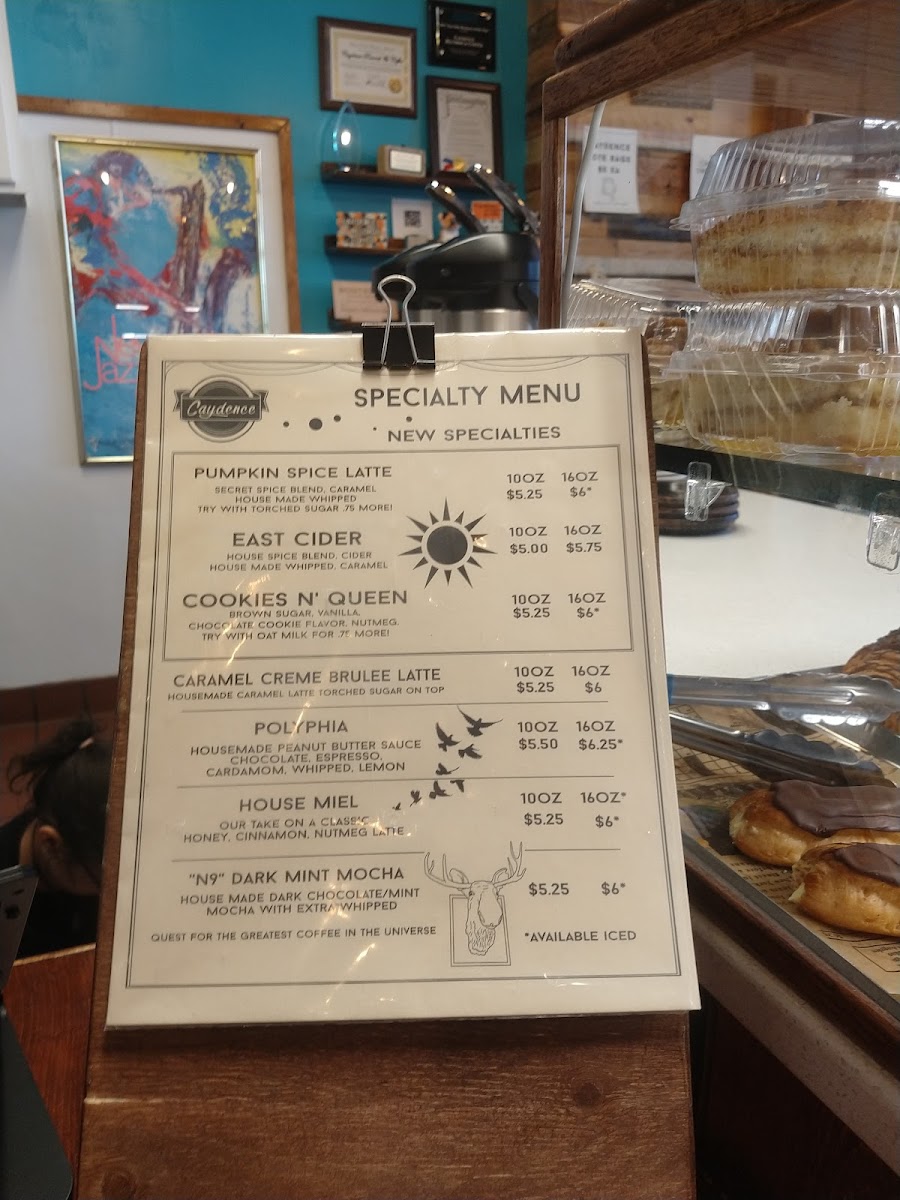 AYDENCE
OTE BAGS
$5 EA
Jaz
Caydence
SPECIALTY MENU
NEW SPECIALTIES
PUMPKIN SPICE LATTE
10OZ 16OZ
SECRET SPICE BLEND, CARAMEL
$5.25 $6*
HOUSE MADE WHIPPED
TRY WITH TORCHED SUGAR .75 MORE!
EAST CIDER
10OZ 16OZ
HOUSE SPICE BLEND, CIDER
$5.00 $5.75
HOUSE MADE WHIPPED, CARAMEL
COOKIES N' QUEEN
10OZ 16OZ
BROWN SUGAR, VANILLA,
$5.25 $6*
CHOCOLATE COOKIE FLAVOR, NUTMEG,
TRY WITH OAT MILK FOR .75 MORE!
CARAMEL CREME BRULEE LATTE
10OZ 16OZ
HOUSEMADE CARAMEL LATTE TORCHED SUGAR ON TOP
$5.25 $6
POLYPHIA
10OZ 16OZ
HOUSEMADE PEANUT BUTTER SAUCE
$5.50 $6.25*
CHOCOLATE, ESPRESSO,
CARDAMOM, WHIPPED, LEMON
HOUSE MIEL
10OZ 16OZ*
OUR TAKE ON A CLASSIC
$5.25 $6*
HONEY, CINNAMON, NUTMEG LATTE
"N9" DARK MINT MOCHA
$5.25 $6*
HOUSE MADE DARK CHOCOLATE/MINT
MOCHA WITH EXTRA WHIPPED
QUEST FOR THE GREATEST COFFEE IN THE UNIVERSE
*AVAILABLE ICED